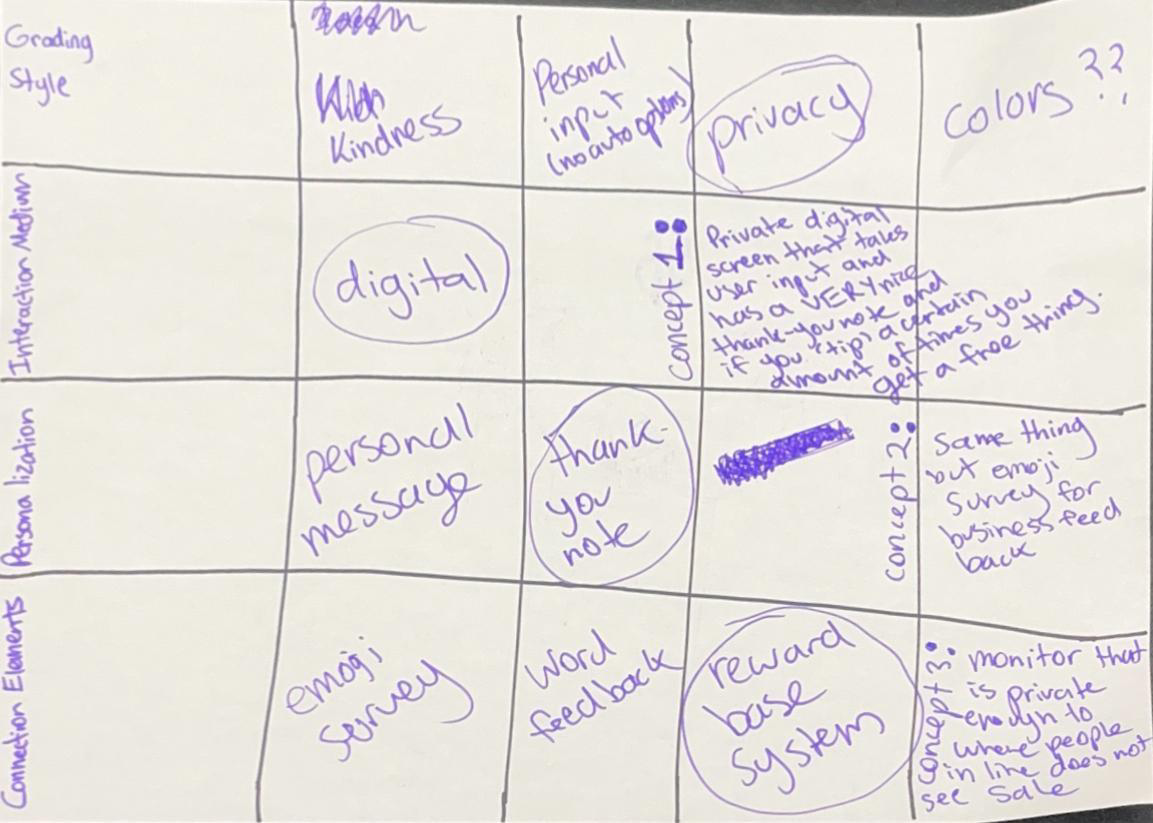 Grading
Style
Kindness
Personal
input
(no auto options)
privacy
colors ??
Interaction Medium
digital
concept 1:
Private digital
screen that takes
user input and
has a VERY nice
thank-you note and
if you "tip" a certain
amount of times you
get a free thing.
Personalization
personal
message
thank-
you
note
concept 2:
Same thing
but emoji
survey for
business feed
back
Connection Elements
emoji
survey
Word
feedback
reward
base
system
concept 3:
monitor that
is private
enough to
where people
in line does not
see sale